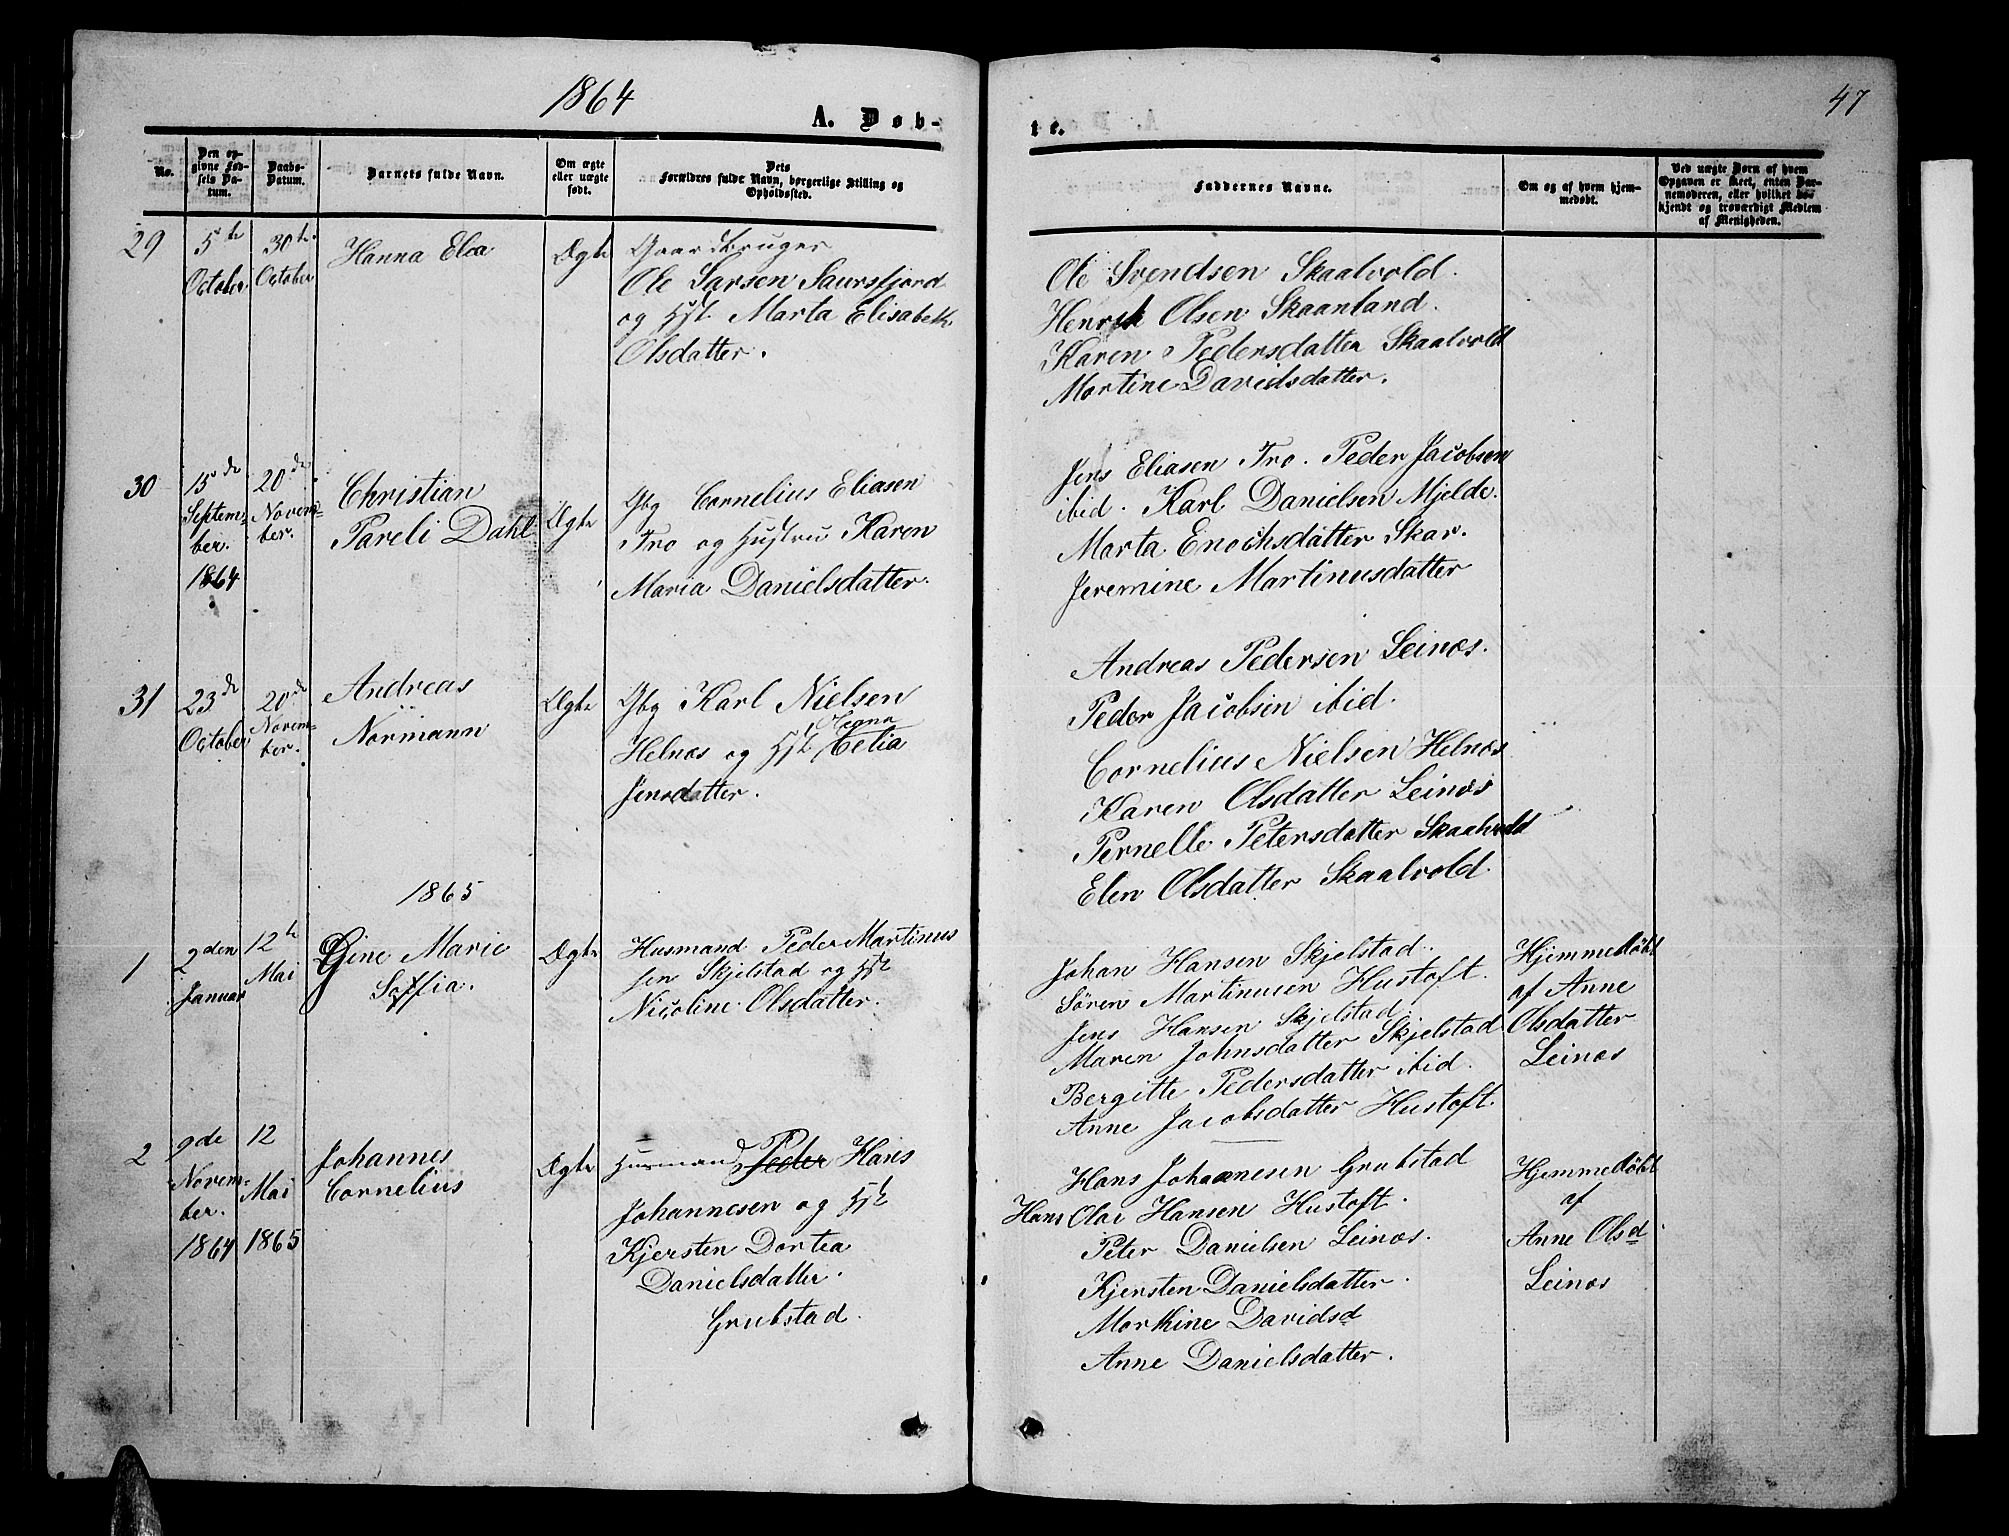 1864
A. Døb-
No.
Den op-
givne Fød-
sels Da-
tum.
Daabs-
Datum.
Barnets fulde Navn.
Om ægte
eller uægte
født.
Dets
Forældres fulde Navn, borgerlige Stilling og
Opholdssted.
29
5te
October
30te
October
Hanna Elea
Ægte
Gaardbruger
Ole Larsen Saursfjord
og Hst. Marta Elisabeth
Olsdatter.
30
15de
Septem-
ber.
1864
20de
Novem-
ber.
Christian
Pareli Dahl
Ægte
Gbg Cornelius Eliasen
Tro og Hustru Karen
Maria Danielsdatter.
31
23de
October
20de
Novem-
ber.
Andreas
Normann
Ægte
Gbg Karl Nielsen
Megna
Helnæs og Hst Celia
Jensdatter.
1865
1
2den
Januar
12te
Mai
Gine Marie
Soffia.
Ægte
Husmand Peder Martinus
sen Skjelstad og Hst
Nicoline Olsdatter.
2
9de
Novem-
ber.
1864
12
Mai
1865
Johannes
Cornelius
Ægte
Husmand Peder Hans
Johannesen og Hst
Kjersten Dortea
Danielsdatter.
Grubstad.
47
te.
Faddernes Navne.
Om og af hvem hjem-
medøbt.
Ved uægte Børn af hvem
Opgaven er skeet, enten Bar-
nemoderen, eller hvilket be-
kjendt og troværdigt Medlem
af Menigheden.
Ole Svendsen Skaalvold.
Henrik Olsen Skaanland.
Karen Pedersdatter Skaalvold
Martine Davidsdatter.
Jens Eliasen Tro. Peder Jacobsen
ibid. Karl Danielsen Mjelde.
Marta Enochsdatter Skar.
Jeremine Martinusdatter
Andreas Pedersen Leinæs.
Peder Jacobsen ibid.
Cornelius Nielsen Helnæs
Karen Olsdatter Leinæs
Pernelle Petersdatter Skaalvold
Elen Olsdatter Skaalvold.
Johan Hansen Skjelstad.
Søren Martinusen Hustoft.
Jens Hansen Skjelstad.
Maren Johnsdatter Skjelstad
Bergitte Pedersdatter ibid.
Anne Jacobsdatter Hustoft.
Hjemmedøbt
af Anne
Olsdatter
Leinæs
Hans Johannesen Grubstad
Hans Olai Hansen Hustoft.
Peter Danielsen Leinæs.
Kjersten Danielsdatter.
Marthine Davidsd
Anne Danielsdatter.
Hjemmedøbt
af
Anne Olsd
Leinæs